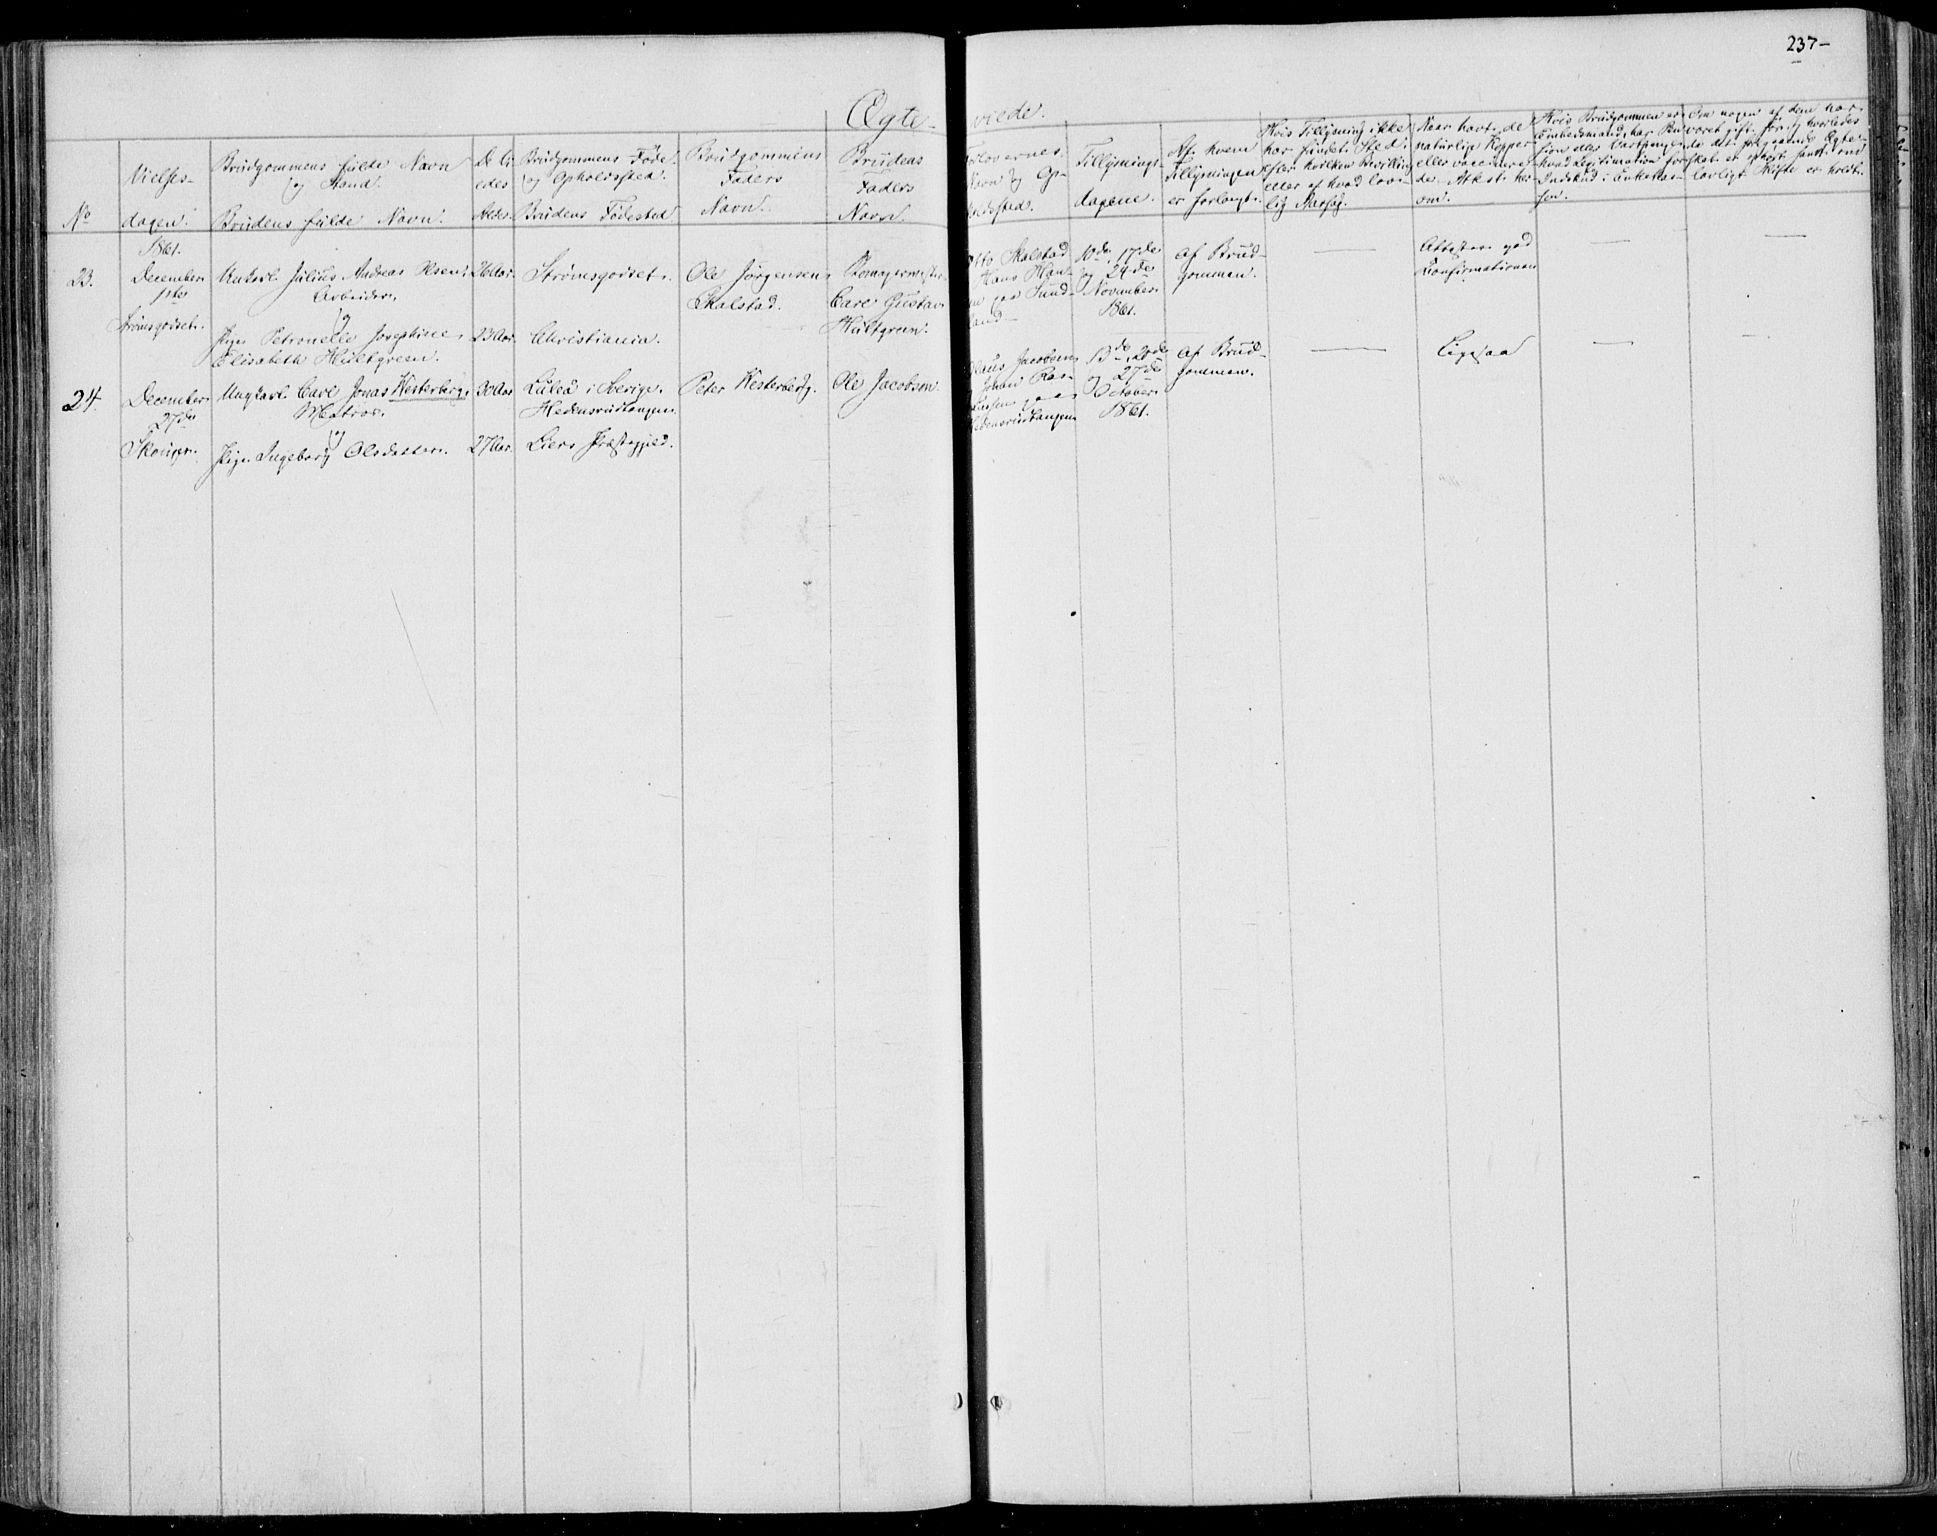 237-
Ægte-
viede.
No
Vielses-
dagen.
Brudgommens fulde Navn
og Stand.
Brudens fulde Navn.
De Vi
edes
Alder.
Brudgommens Føde
og Opholdssted.
Brudens Fødested
Brudgommens
Faders
Navn.
Brudens
Faders
Navn.
Forlovernes
Navn og Op-
holdssted.
Tillysnings-
dagene.
Af hvem
Tillysningen
er forlangt.
Hvis Tillysning ikke
har fundet Sted,
efter hvilken Bevilling
eller af hvad lov-
lig Aarsag.
Naar havt de
naturlige Kopper
eller vaccinere-
de. Attest her-
om.
Hvis Brudgommen er
Embedsmand, har Pen-
sion eller Vartpenge
hvad Legitimation for
Indskud i Enkekas-
sen.
Om nogen af dem har
været gift før, og hvorledes
det foregaaende Ægte-
skab er ophørt samt om
lovligt Skifte er holdt.
23.
1861.
December
1ste
Strømsgodset.
Unkarl Julius Andreas Olsen
Arbeider
og
Pige Petronelle Josephine
Elisabeth Hultgreen.
26 Aar.
23 Aar.
Strømsgodset.
Christiania.
Ole Jørgensen
Skalstad.
Carl Gustav
Hultgreen.
Otto Skalstad
Hans Han-
sen paa Sund-
land
10de, 17de
og 24de
November
1861.
Af Brud-
gommen.
Attester ved
Confirmationen
24.
December
27de
Skouger.
Ungkarl Carl Jonas Westerberg,
Matros.
og
Pige Ingeborg Olsdatter.
30 Aar.
27 Aar.
Luleå i Sverige.
Hedensrudtangen
Liers Præstegjeld.
Peter Westerberg.
Ole Jacobsen.
Claus Jacobsen
Johan Ras-
Hedensrudtangen
13de, 20de
og 27de
October
1861.
Af Brud-
gommen.
Ligesaa